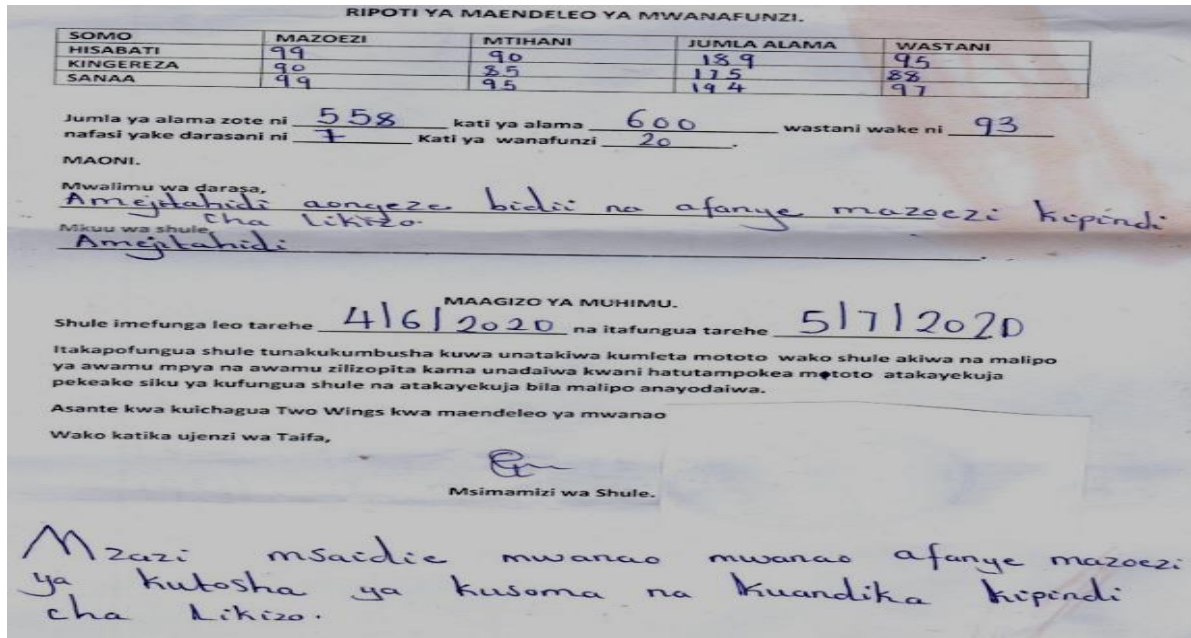 RIPOTI YA MAENDELEO YA MWANAFUNZI.
SOMO MAZOEZI MTIHANI JUMLA ALAMA WASTANI
HISABATI 99 90 189 95
KINGEREZA 90 85 175 88
SANAA 99 95 194 97
Jumla ya alama zote ni 558 kati ya alama 600 wastani wake ni 93
nafasi yake darasani ni 7 Kati ya wanafunzi 20.
MAONI.
Mwalimu wa darasa,
Amejitahidi aongeze bidii na afanye mazoezi kipindi
cha likizo.
Mkuu wa shule,
Amejitahidi.
MAAGIZO YA MUHIMU.
Shule imefunga leo tarehe 4/6/2020 na itafungua tarehe 5/7/2020
Itakapofungua shule tunakukumbusha kuwa unatakiwa kumleta mototo wako shule akiwa na malipo
ya awamu mpya na awamu zilizopita kama unadaiwa kwani hatutampokea mototo atakayekuja
pekeake siku ya kufungua shule na atakayekuja bila malipo anayodaiwa.
Asante kwa kuichagua Two Wings kwa maendeleo ya mwanao
Wako katika ujenzi wa Taifa,
Msimamizi wa Shule.
Mzazi msaidie mwanao mwanao afanye mazoezi
ya kutosha ya kusoma na kuandika kipindi
cha likizo.